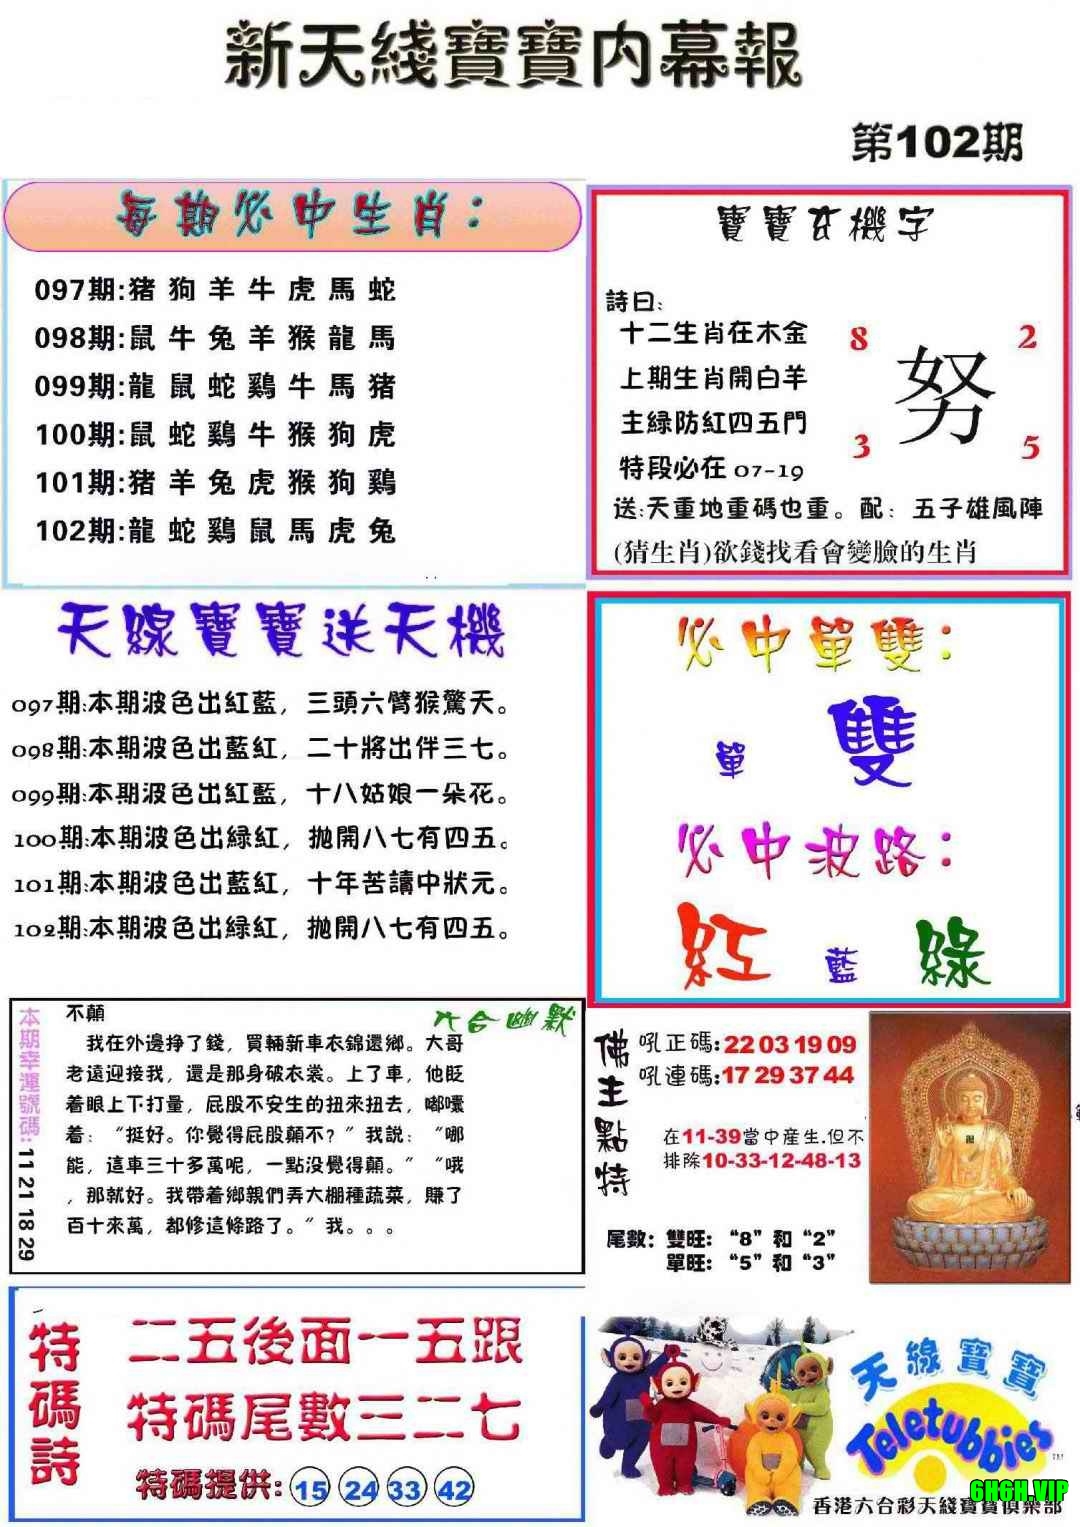 新天綫寶寶内幕報
第102期
每期必中生肖：
097期:猪狗羊牛虎馬蛇
098期:鼠牛兔羊猴龍馬
099期:龍鼠蛇鷄牛馬猪
100期:鼠蛇鷄牛猴狗虎
101期:猪羊兔虎猴狗鷄
102期:龍蛇鷄鼠馬虎兔
寶寶玄機字
詩曰:
十二生肖在木金
上期生肖開白羊
主緑防紅四五門
特段必在 07-19
8 2
努
3 5
送:天重地重碼也重。配：五子雄風陣
(猜生肖)欲錢找看會變臉的生肖
天線寶寶送天機
097期:本期波色出紅藍，三頭六臂猴驚天。
098期:本期波色出藍紅，二十將出伴三七。
099期:本期波色出紅藍，十八姑娘一朵花。
100期:本期波色出緑紅，抛開八七有四五。
101期:本期波色出藍紅，十年苦讀中狀元。
102期:本期波色出緑紅，抛開八七有四五。
必中單雙：
單 雙
必中波路：
紅 藍 綠
本期幸運號碼: 11 21 18 29
六合幽默
不顛
我在外邊挣了錢，買輛新車衣錦還鄉。大哥
老遠迎接我，還是那身破衣裳。上了車，他眨
着眼上下打量，屁股不安生的扭來扭去，嘟囔
着：“挺好。你覺得屁股顛不？”我說：“哪
能，這車三十多萬呢，一點没覺得顛。”“哦
，那就好。我帶着鄉親們弄大棚種蔬菜，賺了
百十來萬，都修這條路了。”我。。。
佛主點特
吼正碼:22 03 19 09
吼連碼:17 29 37 44
在11-39當中産生.但不
排除10-33-12-48-13
尾數：雙旺：“8”和“2”
單旺：“5”和“3”
特碼詩
二五後面一五跟
特碼尾數三二七
特碼提供: 15 24 33 42
天線寶寶
Teletubbies
TM
6H6H.VIP
香港六合彩天綫寶寶俱樂部